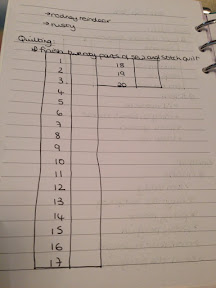 → rodney reindeer
→ rusty
Quilting:
Finish twenty parts of sew and stitch quilt
1 18
2 19
3 20
4
5
6
7
8
9
10
11
12
13
14
15
16
17